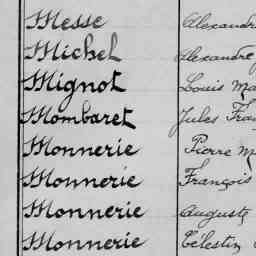 Messe Alexandre
Michel Alexandre
Mignot Louis
Mombaret Jules
Monnerie Pierre
Monnerie François
Monnerie Auguste
Monnerie Célestin